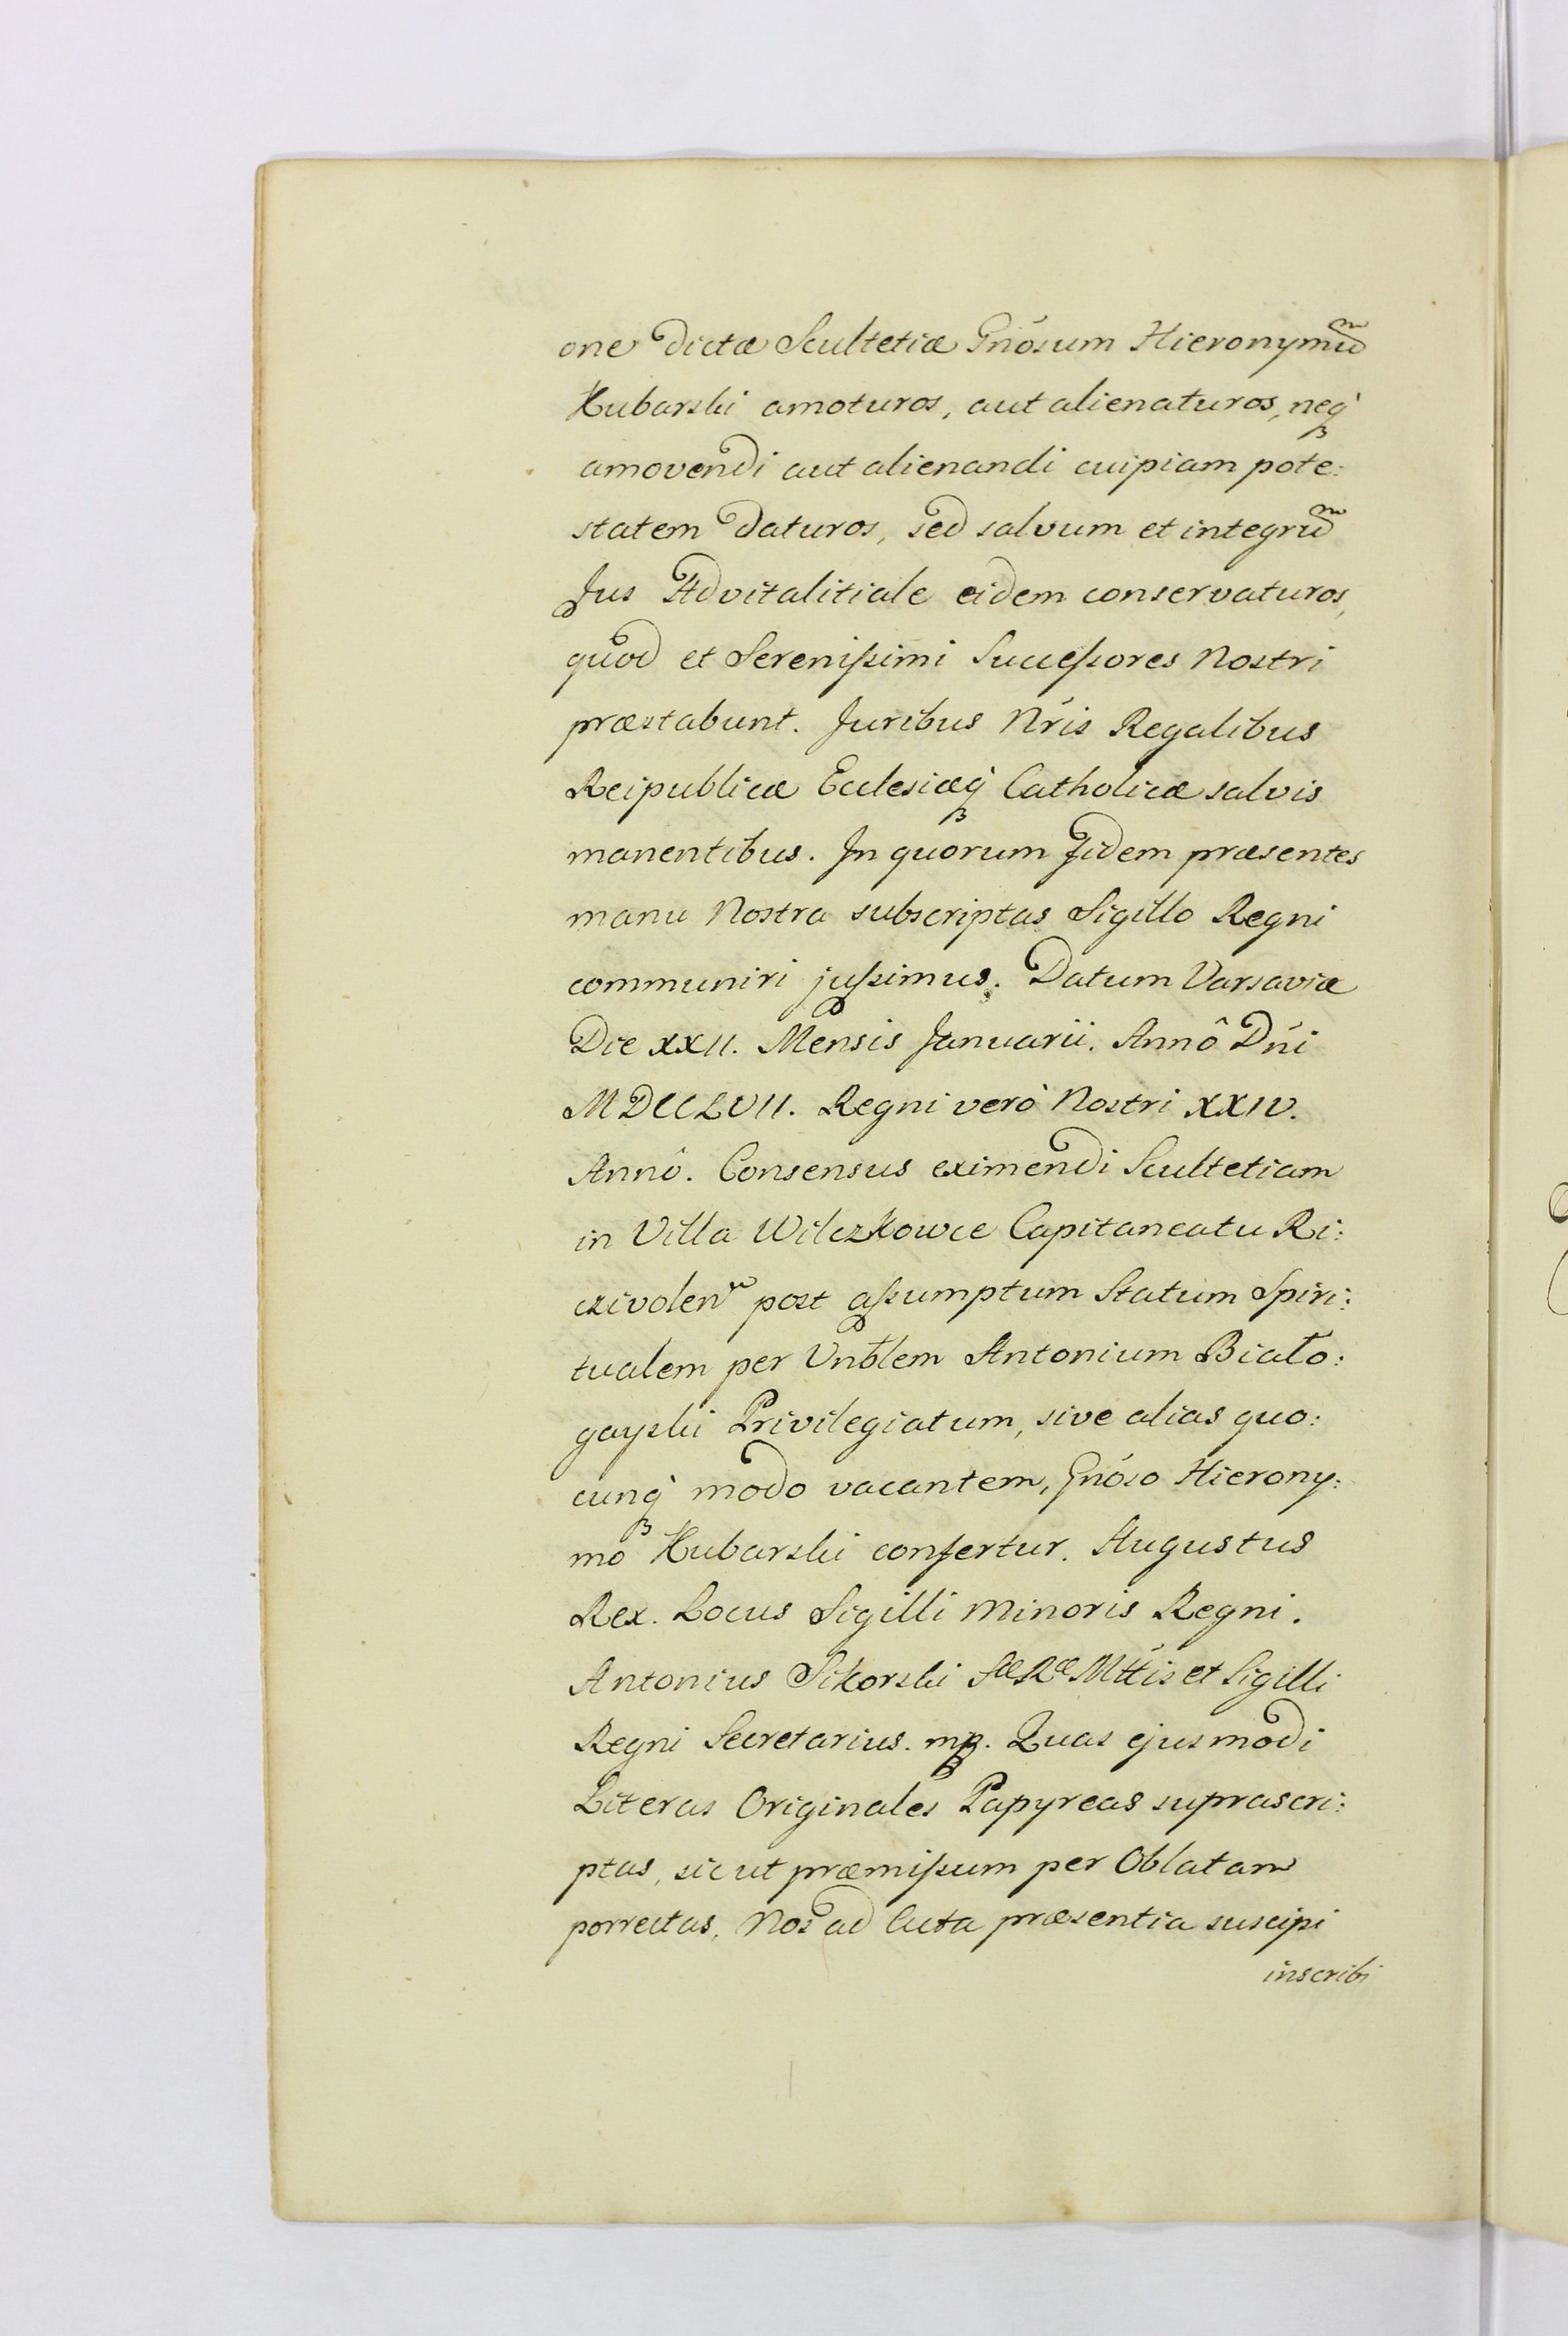 one dictæ Scultetiæ Gnósum Hieronymũ
Kubarski amoturos, aut alienaturos, neq́
amovendi aut alienandi cuipiam pote:
statem daturos, sed salvum et integrũ
Jus Advitalitiale eidem conservaturos,
quod et Serenißimi Succeßores Nostri
præstabunt. Juribus Nris Regalibus
Reipublicæ Ecclesiæq́ Catholicæ salvis
manentibus. In quorum fidem præsentes
manu Nostra subscriptas Sigillo Regni
communiri jußimus. Datum Varsaviæ
Die XXII. Mensis Januarii. Annô Dni
MDCCLVII. Regni verò Nostri XXIV.
Annô. Consensus eximendi Scultetiam
in Villa Wilczkowce Capitaneatu Ri:
czivolen post aßumptum Statum Spiri:
tualem per Vnblem Antonium Biało:
gayski Privilegiatum, sive alias quo:
cunq́ modo vacantem, Gnóso Hierony:
mo Kubarski confertur. Augustus
Rex. Locus Sigilli Minoris Regni.
Antonius Sikorski Sæ Ræ Mttis et Sigilli
Regni Secretarius. mp. Quas ejusmodi
Literas Originales Papyreas suprascri:
ptas, sicut præmißum per Oblatam
porrectas, Nos ad Acta præsentia suscipi
inscribi